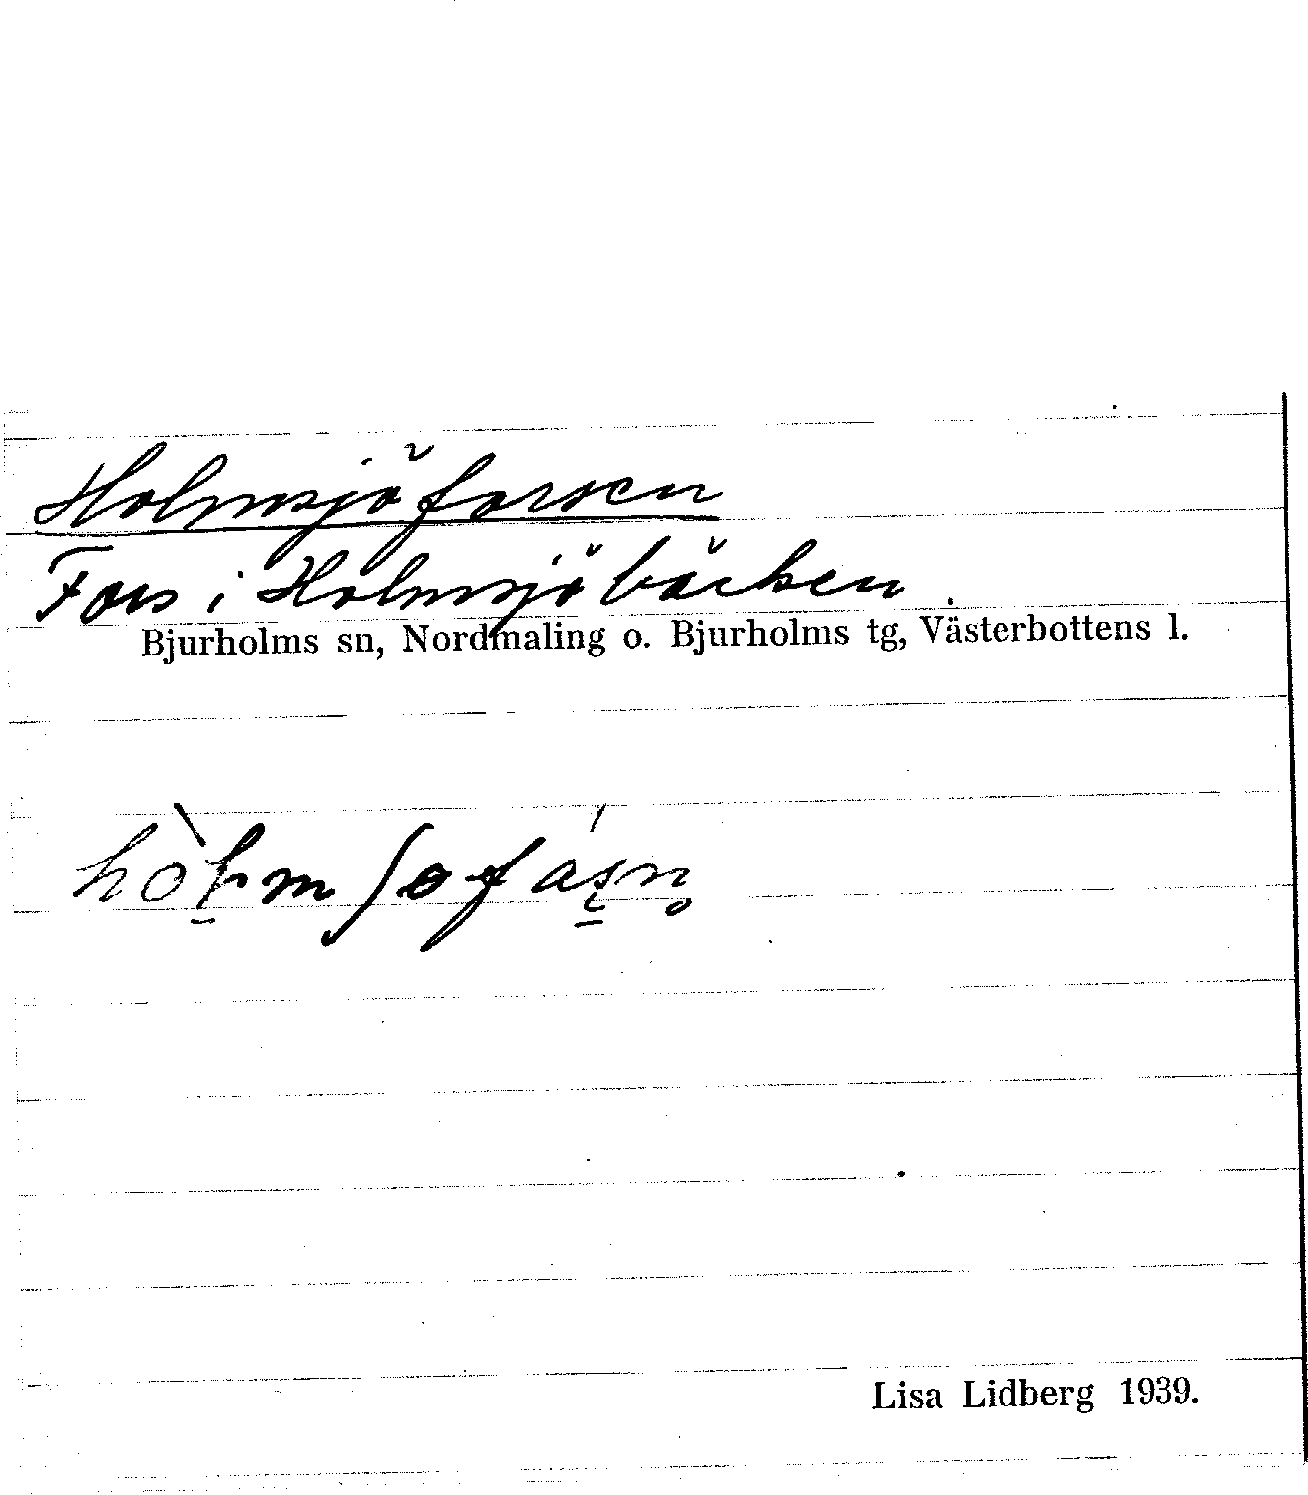 Holmsjöforsen
Fors i Holmsjöbäcken.
Bjurholms sn, Nordmaling o. Bjurholms tg, Västerbottens l.
Lisa Lidberg 1939.